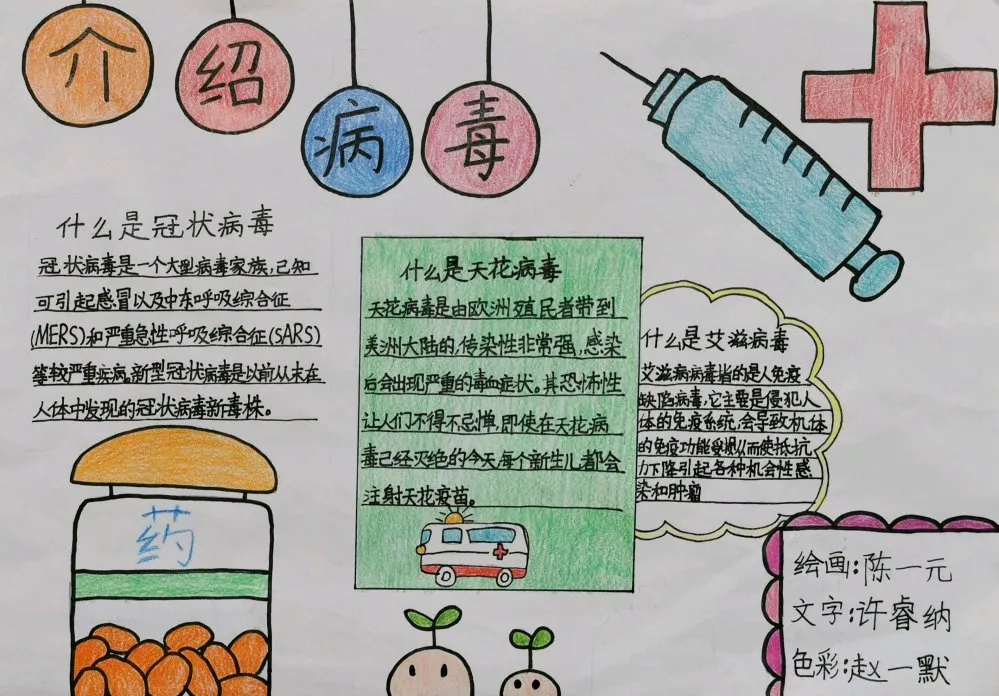 介绍病毒
什么是冠状病毒
冠状病毒是一个大型病毒家族,已知
可引起感冒以及中东呼吸综合征
(MERS)和严重急性呼吸综合征(SARS)
等较严重疾病。新型冠状病毒是以前从未在
人体中发现的冠状病毒新毒株。
什么是天花病毒
天花病毒是由欧洲殖民者带到
美洲大陆的,传染性非常强,感染
后会出现严重的毒血症状。其恐怖性
让人们不得不忌惮,即使在天花病
毒已经灭绝的今天,每个新生儿都会
注射天花疫苗。
什么是艾滋病毒
艾滋病病毒指的是人免疫
缺陷病毒,它主要是侵犯人
体的免疫系统,会导致机体
的免疫功能受损从而使抵抗
力下降引起各种机会性感
染和肿瘤
药
绘画:陈一元
文字:许睿纳
色彩:赵一默